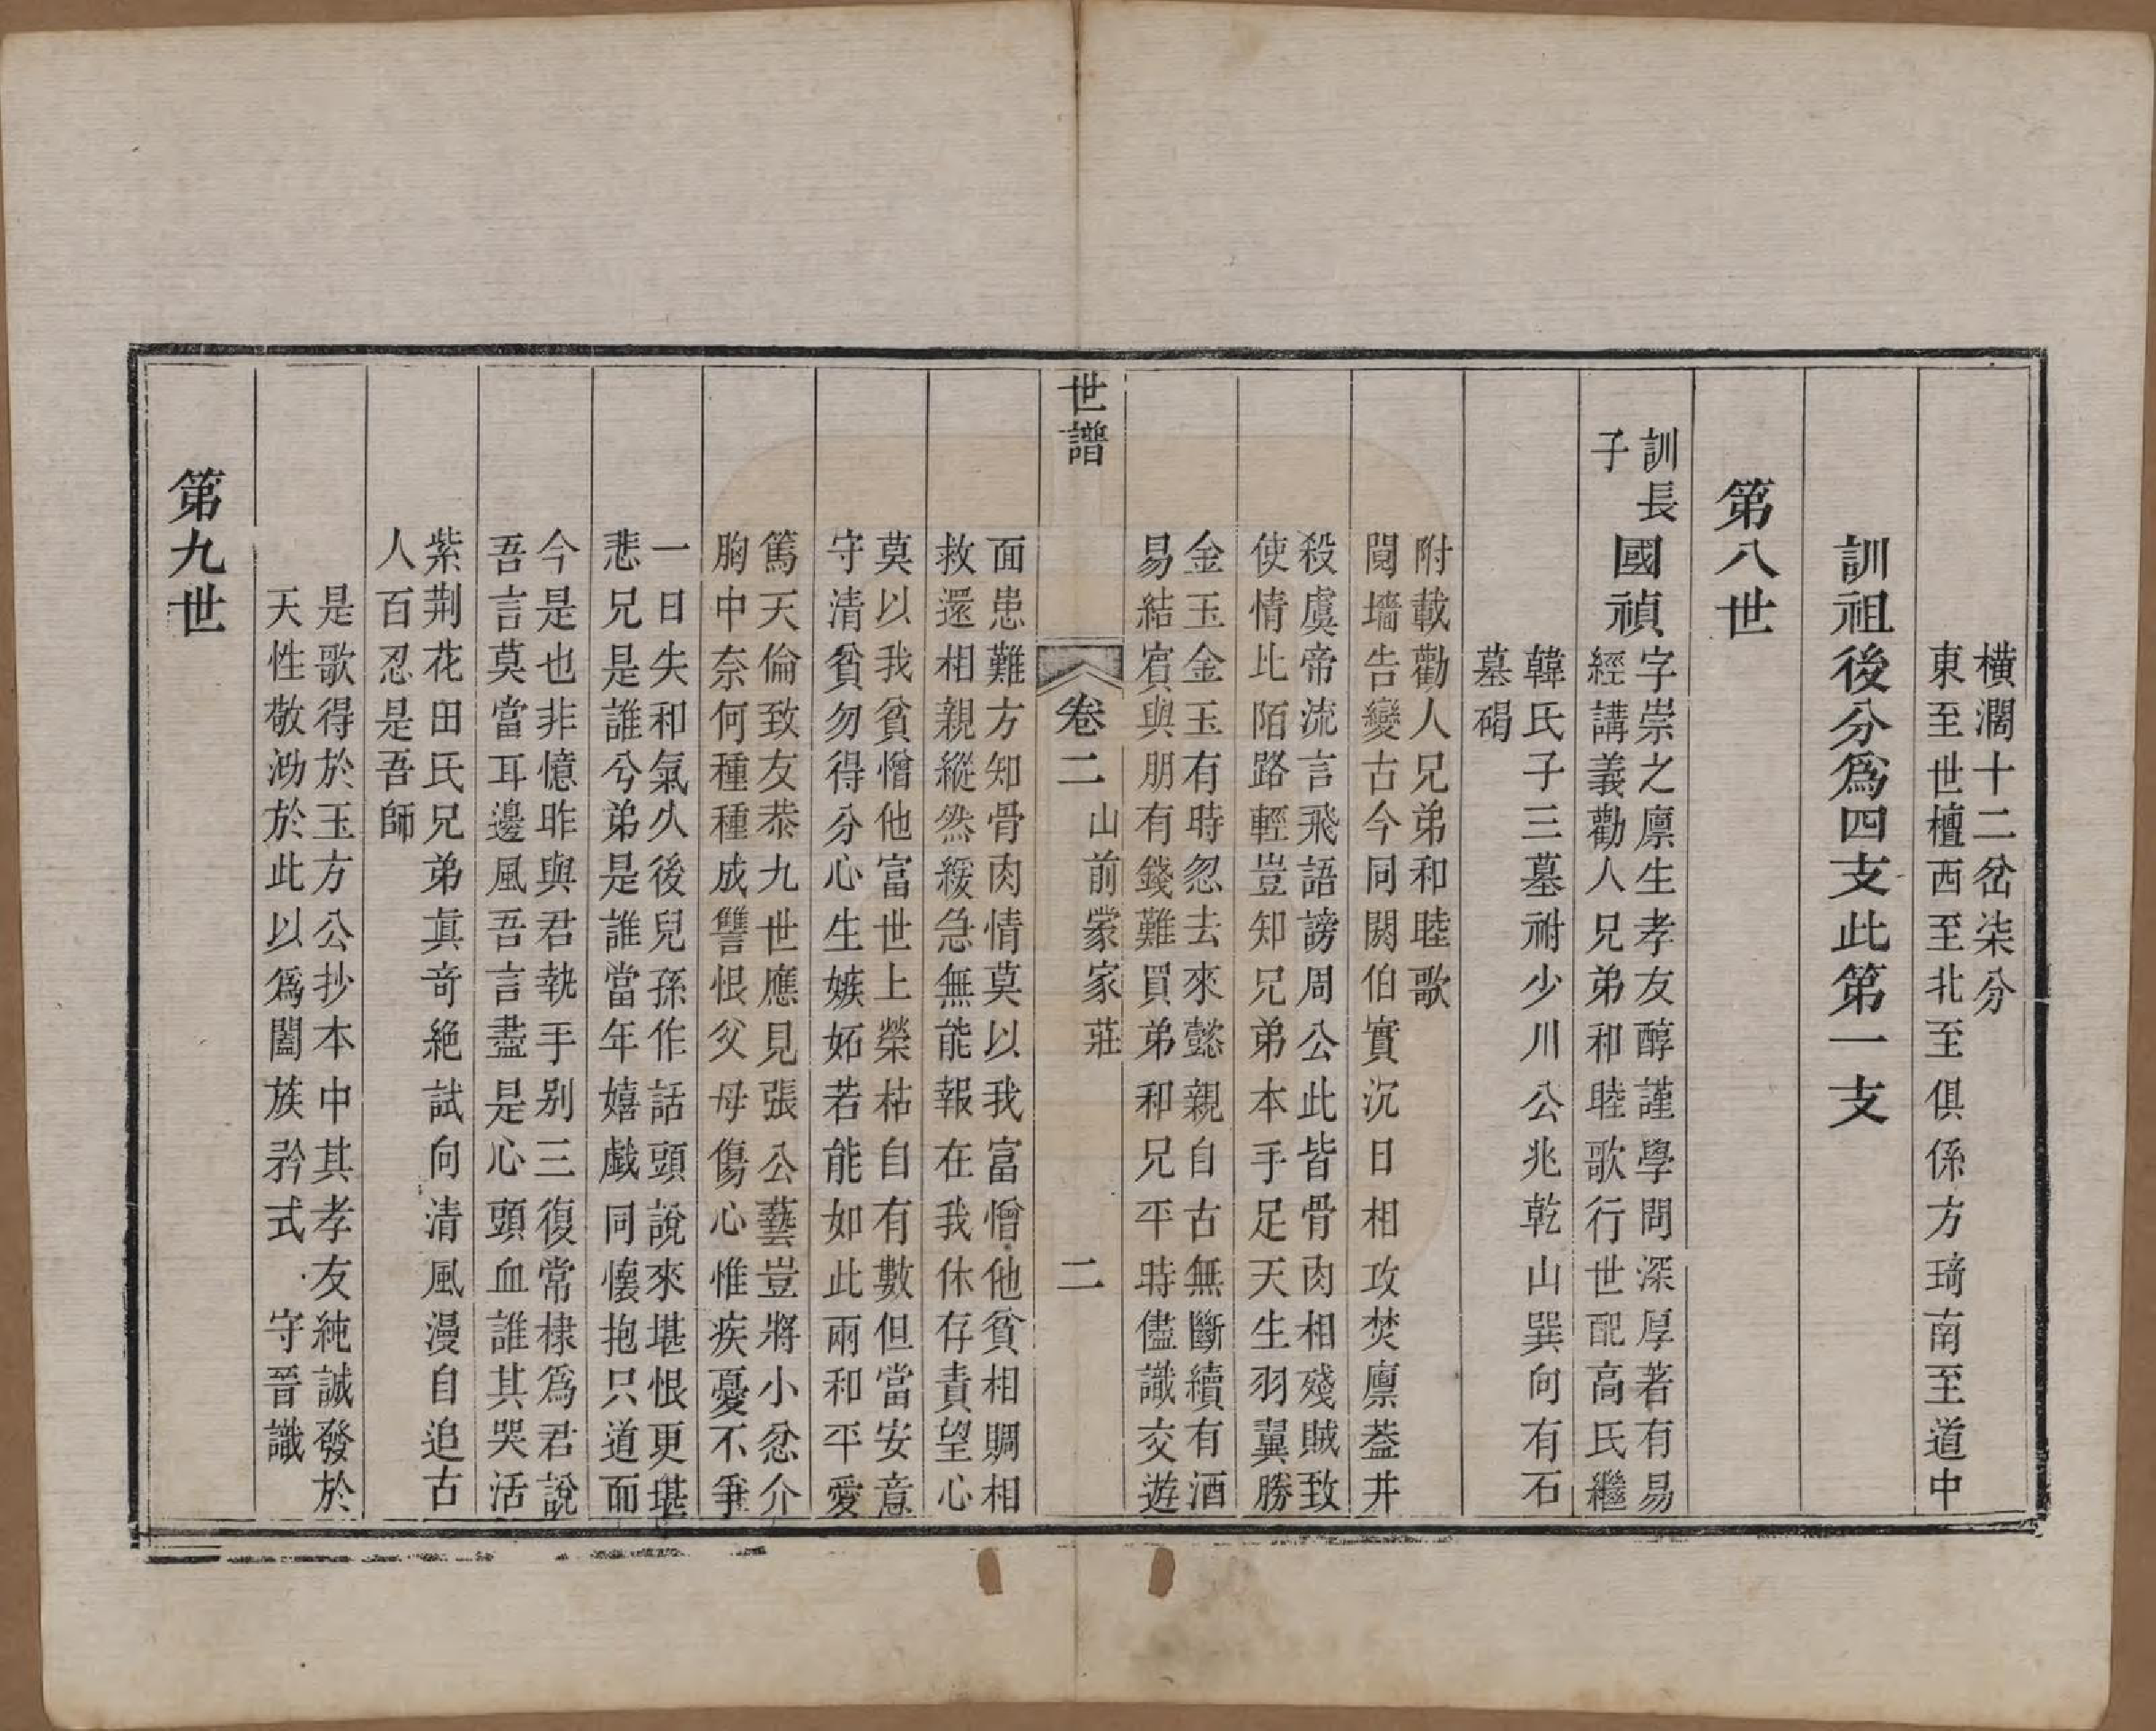 橫濶十二岔柒分
東至世檀西至北至俱係方琦南至道中
訓祖後分爲四支此第一支
第八世
訓長
子
國禎
字崇之廪生孝友醇謹學問深厚著有易
經講義勸人兄弟和睦歌行世配高氏繼
韓氏子三墓祔少川公兆乾山巽向有石
墓碣
附載勸人兄弟和睦歌
鬩墻告變古今同閼伯實沉日相攻焚廪葢井
殺虞帝流言飛語謗周公此皆骨肉相殘賊致
使情比陌路輕豈知兄弟本手足天生羽翼勝
金玉金玉有時忽去來懿親自古無斷續有酒
易結賓與朋有錢難買弟和兄平時儘識交遊
世譜
卷二
山前䝉家莊
二
面患難方知骨肉情莫以我富憎他貧相賙相
救還相親縱然緩急無能報在我休存責望心
莫以我貧憎他富世上榮枯自有數但當安意
守清貧勿得分心生嫉妬若能如此兩和平愛
篤天倫致友恭九世應見張公藝豈將小忿介
胸中奈何種種成讐恨父母傷心惟疾憂不爭
一日失和氣久後兒孫作話頭說來堪恨更堪
悲兄是誰兮弟是誰當年嬉戯同懷抱只道而
今是也非憶昨與君執手别三復常棣爲君說
吾言莫當耳邊風吾言盡是心頭血誰其哭活
紫荆花田氏兄弟眞奇絶試向清風漫自追古
人百忍是吾師
是歌得於玉方公抄本中其孝友純誠發於
天性敬泐於此以爲闔族矜式
守晉識
第九世